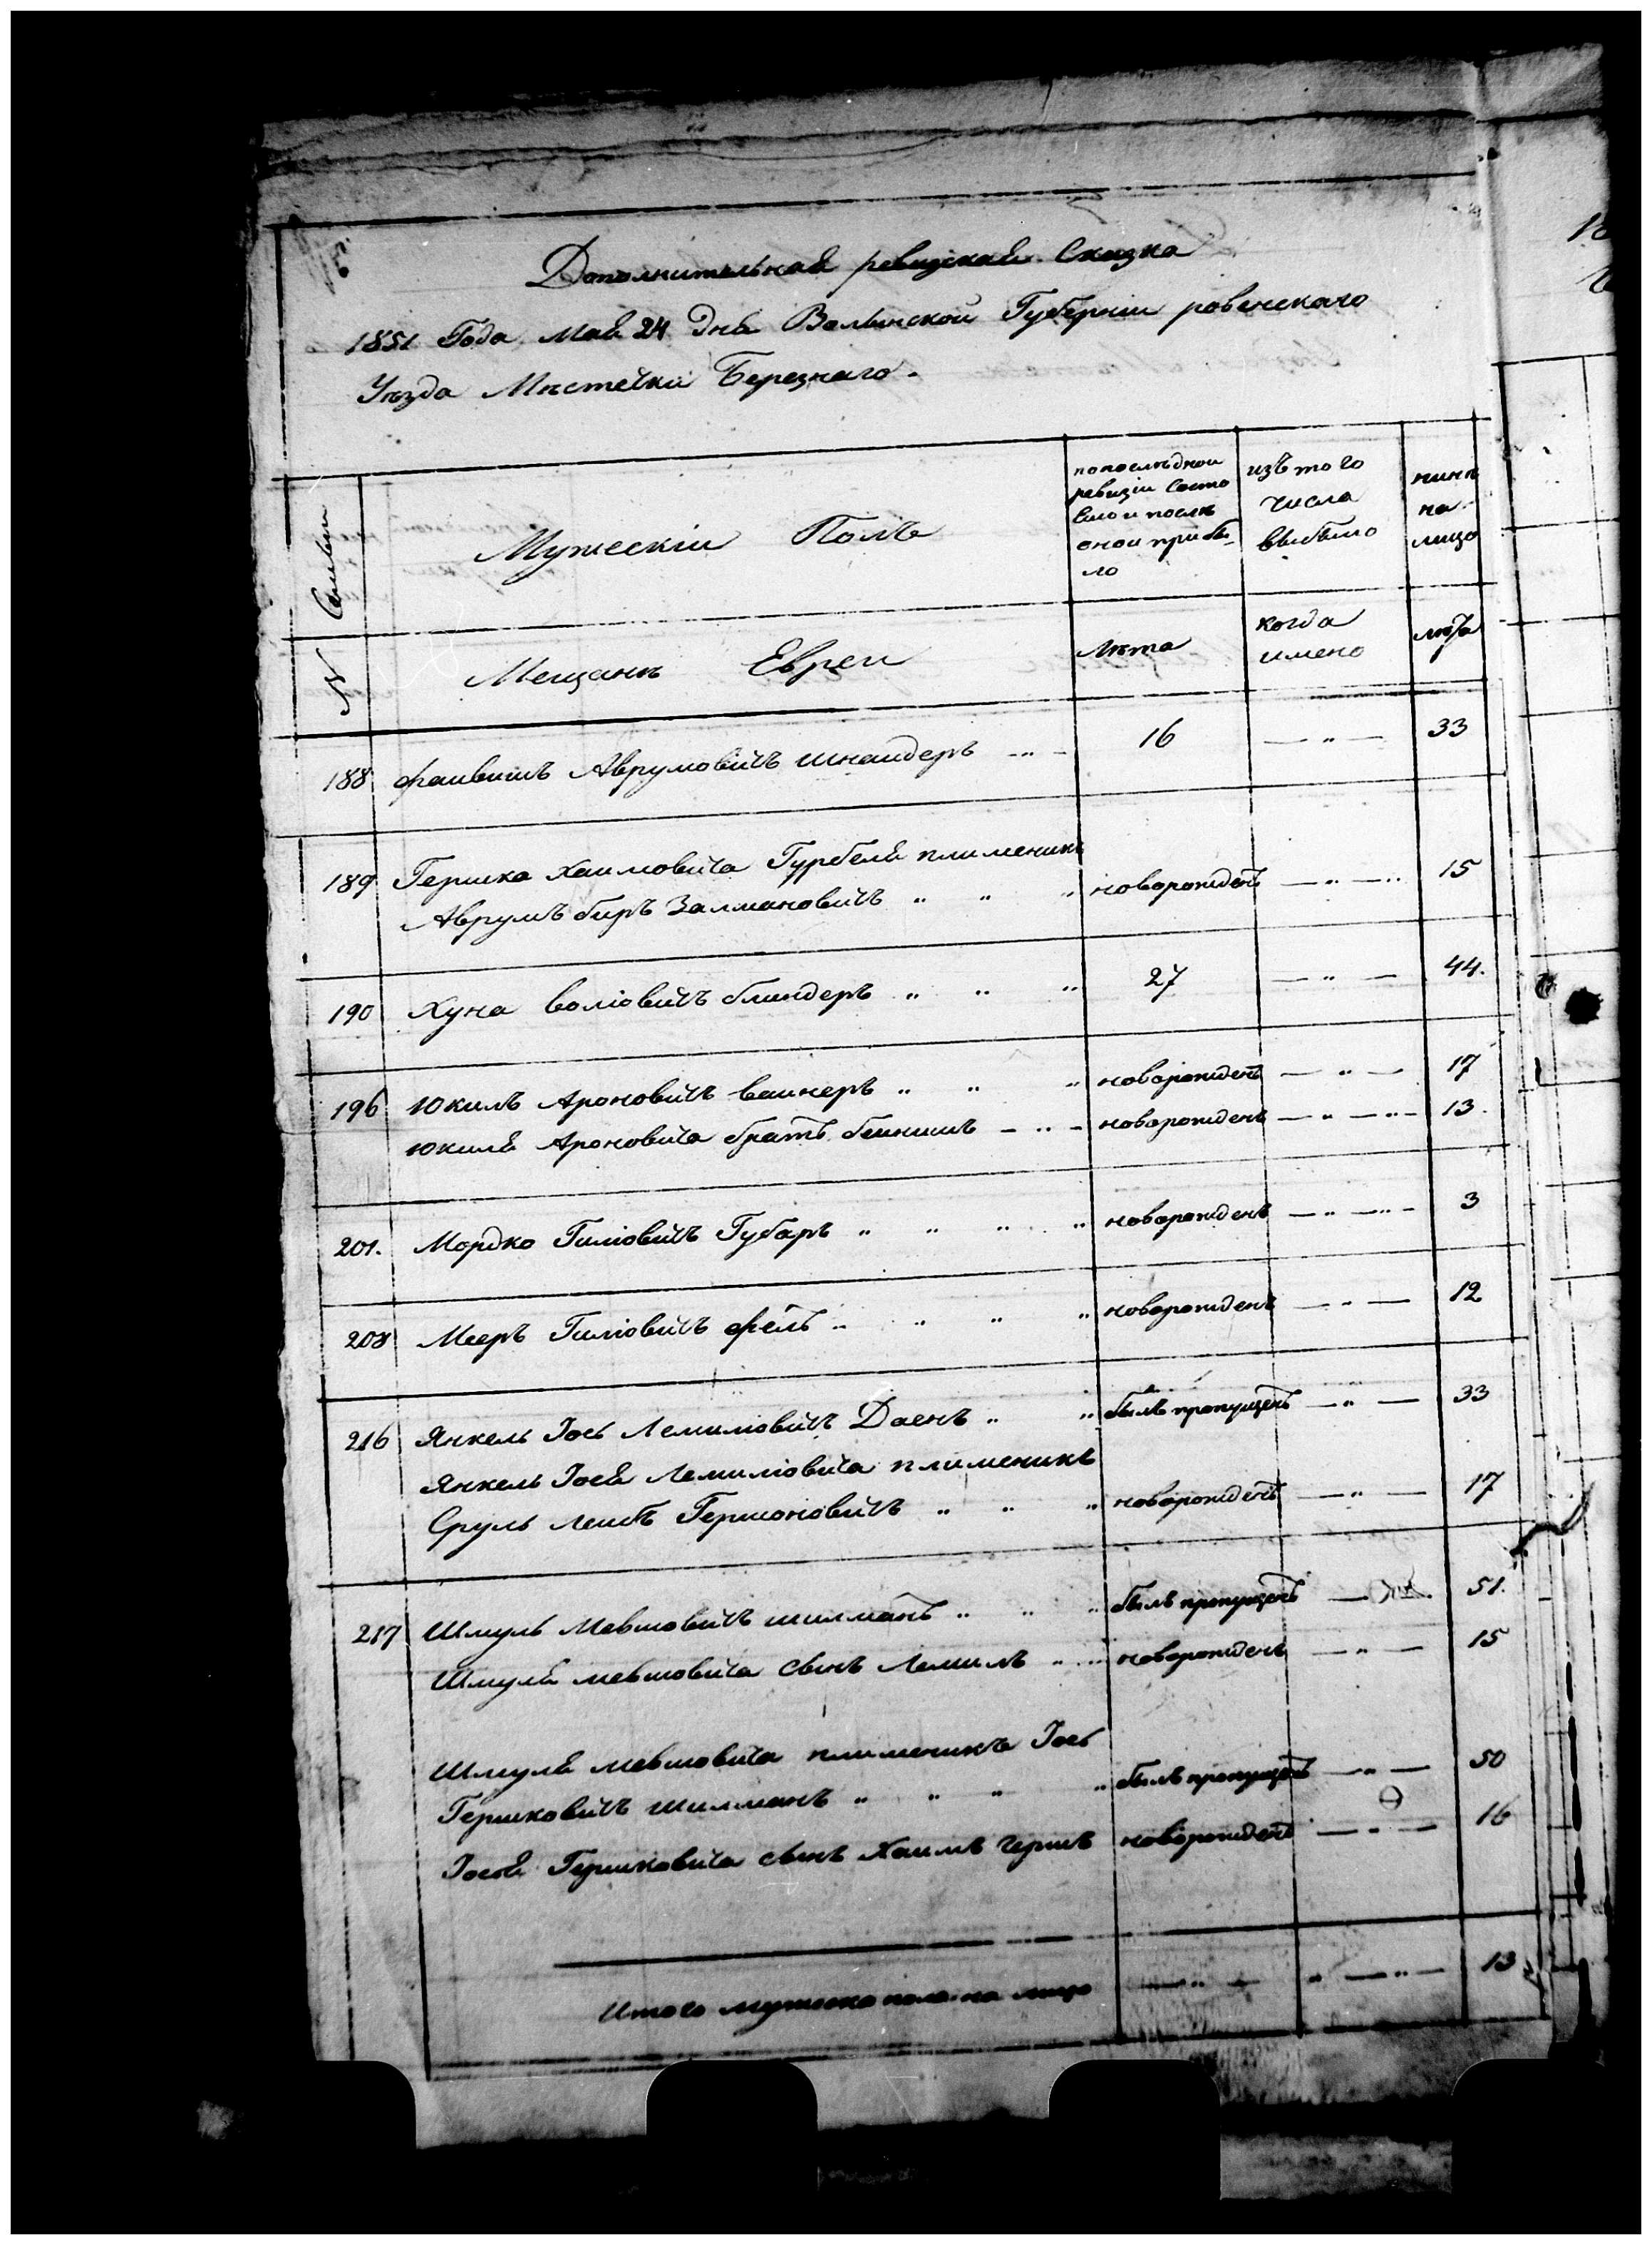 Дополнительная ревизская Сказка
1851 Года Мая 24 дня Волынской Губерніи ровенскаго
Уѣзда Мѣстечка Березнаго.
№ Семьи
Мужескіи Полъ
попослѣднои
ревизіи Состо
яло и послѣ
онои прибы-
ло
изъ того
числа
выбыло
нинѣ
на
лицо
Мещанѣ Евреи
лѣта
когда
имено
лѣта
188 фаивишъ Аврумовичъ шнаидеръ 16 — „ — 33
189 Гершка Хаимовича Гурбеля плименикъ
Аврумъ биръ Залмановичъ „ „ „ новорожденъ — „ — 15
190 Хуна воліовичъ блиндеръ „ „ „ 27 — „ — 44.
196 Юкилъ Ароновичъ ваинеръ „ „ „ новорожденъ — „ — 17
Юкиля Ароновича братъ беинишъ — „ — новорожденъ — „ — 13.
201. Мордко Гиліовичъ Губаръ „ „ „ „ новорожденъ — „ — 3
208 Мееръ Гиліовичъ фелъ „ „ „ „ новорожденъ — „ — 12
216 Янкель Іось Лемиліовичъ Даенъ „ „ былъ пропущенъ — „ — 33
Янкель Іося Лемиліовича плименикъ
Сруль леибъ Гершоновичъ „ „ „ новорожденъ — „ — 17
217 Шмуль Мевшовичъ шилманъ „ „ „ былъ пропущенъ — 51.
Шмуля мевшовича сынъ Лемилъ „ „ новорожденъ — „ — 15
Шмуля мевшовича плименикъ Іось
Гершковичъ шилманъ „ „ „ „ былъ пропущенъ — „ — 50
Іося Гершковича сынъ Хаимъ Гершъ новорожденъ — „ — 16
Итого мужеска пола на лицо — „ — „ — „ — 13